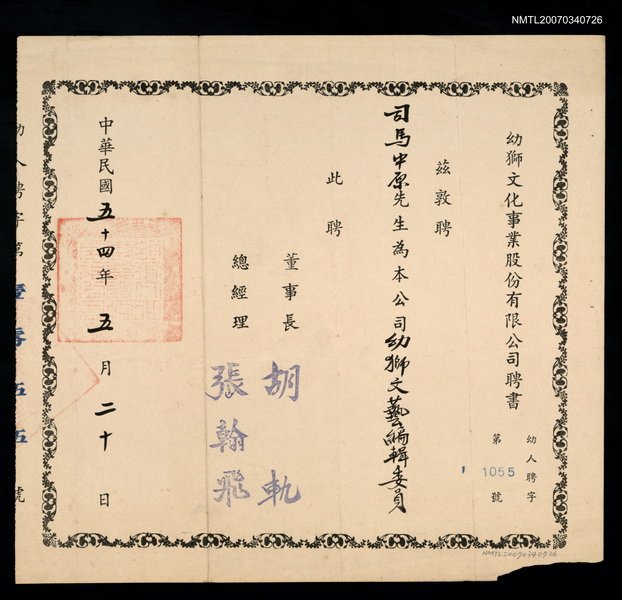 NMTL20070340726
幼獅文化事業股份有限公司聘書
幼人聘字
第 1055 號
茲敦聘
司馬中原先生為本公司幼獅文藝編輯委員
此聘
董事長 胡軌
總經理 張翰飛
中華民國五十四年五月二十日
幼人聘字第壹零伍伍號
NMTL20090340726